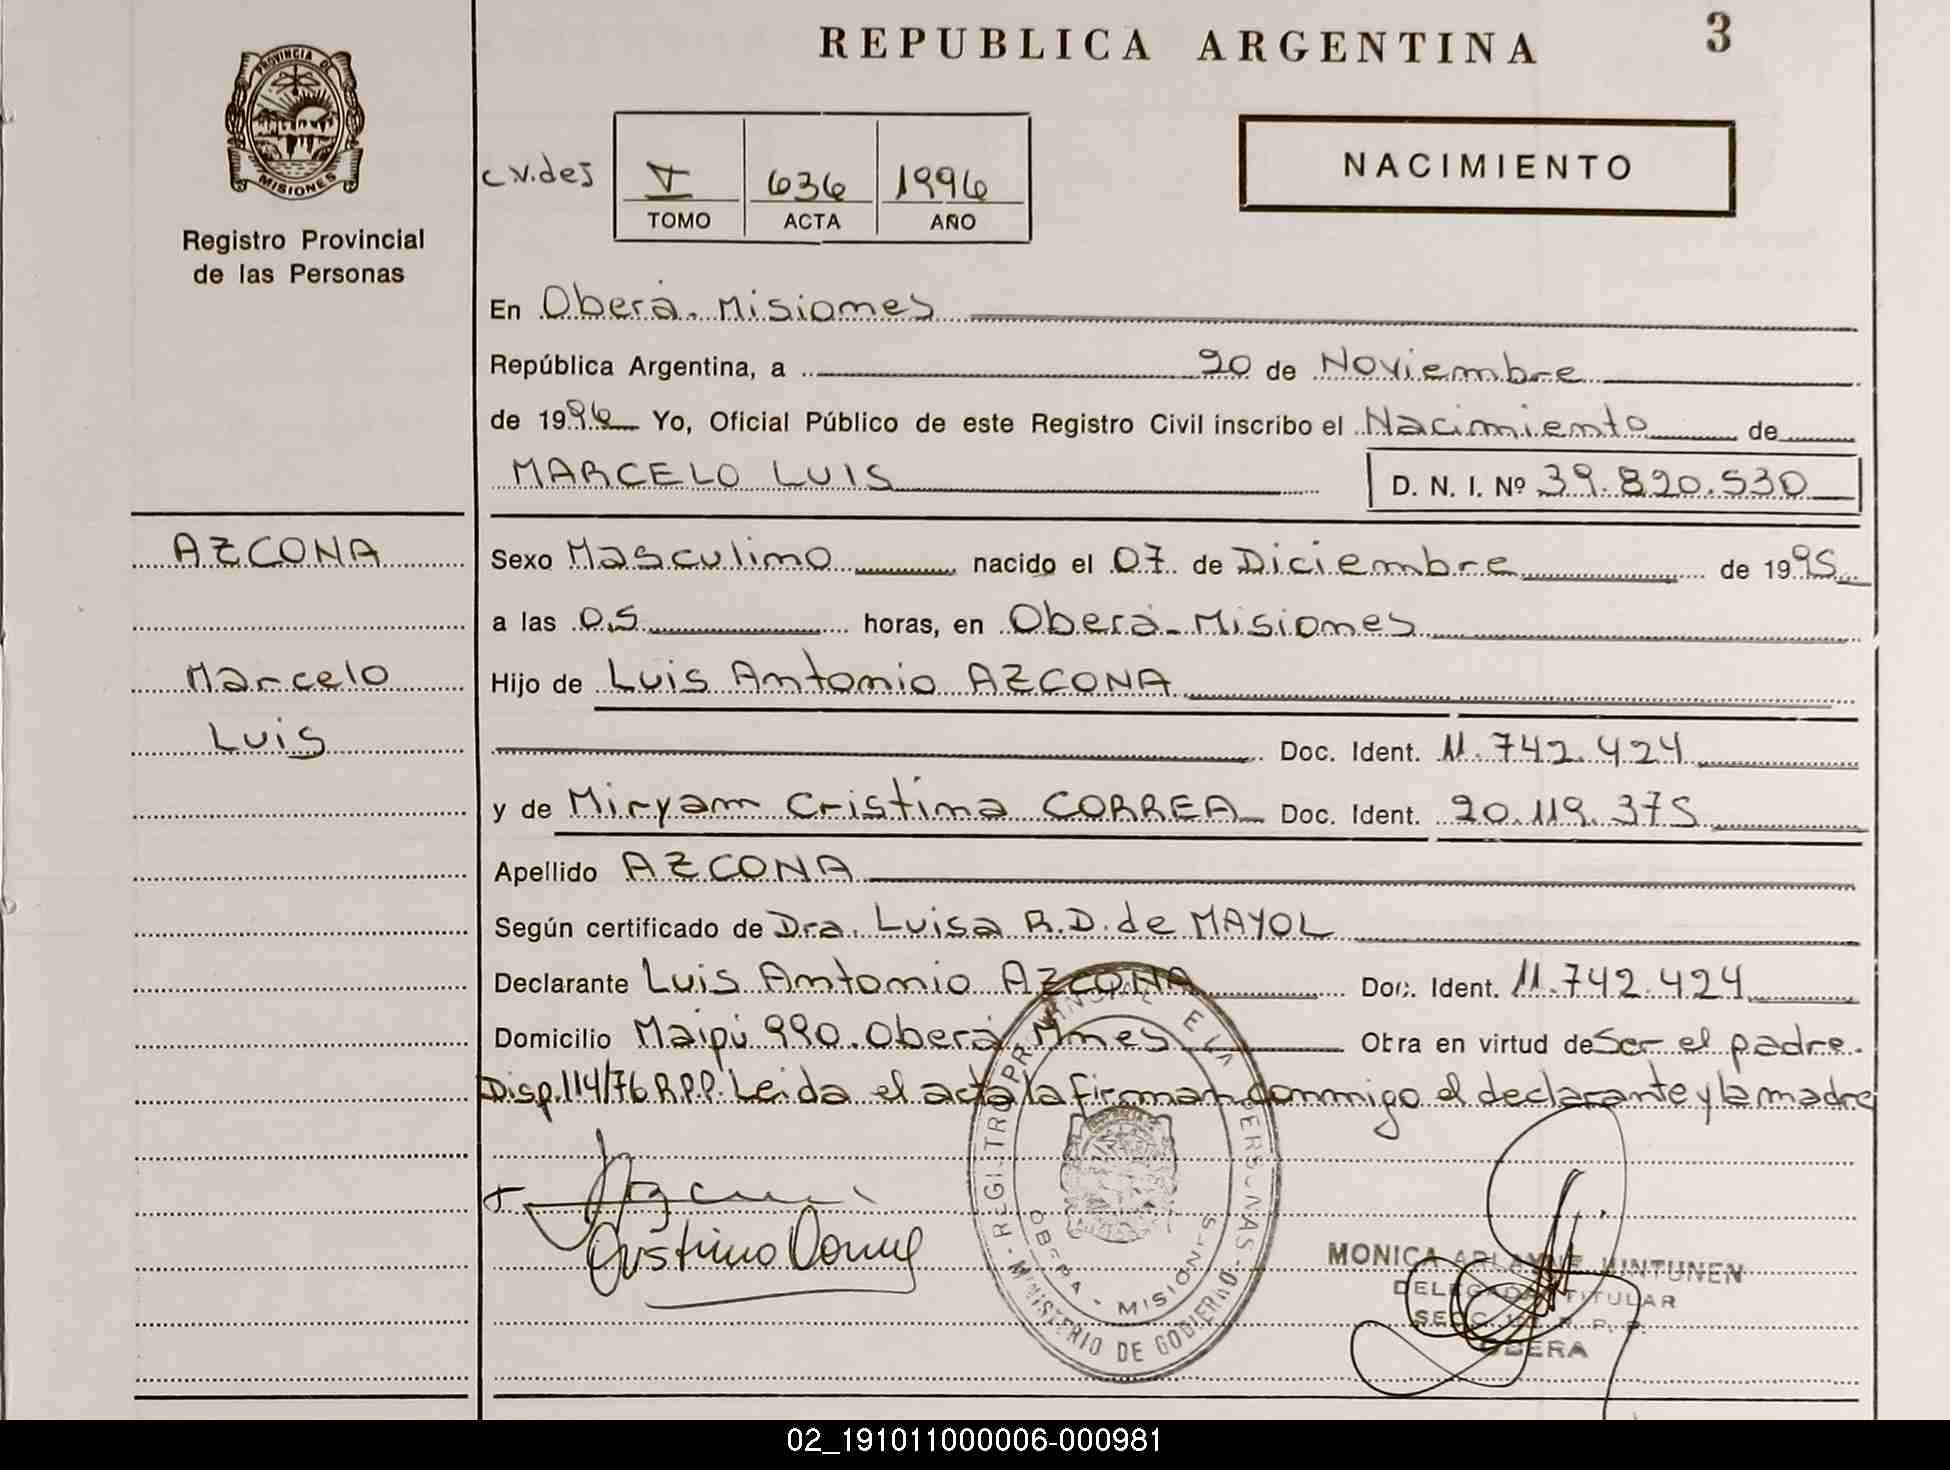 REPUBLICA ARGENTINA 3
PROVINCIA DE
MISIONES
Registro Provincial
de las Personas
NACIMIENTO
I 636 1996
TOMO ACTA AÑO
En Oberá. Misiones
República Argentina, a 20 de Noviembre
de 1996 Yo, Oficial Público de este Registro Civil inscribo el Nacimiento de
MARCELO LUIS D. N. I. Nº 39.820.530
AZCONA
Marcelo
Luis
Sexo Masculino nacido el 07 de Diciembre de 1995
a las 05 horas, en Oberá - Misiones
Hijo de Luis Antonio AZCONA
Doc. Ident. 11.742.424
y de Miryam Cristina CORREA Doc. Ident. 20.119.375
Apellido AZCONA
Según certificado de Dra. Luisa R.D. de MAYOL
Declarante Luis Antonio AZCONA Doc. Ident. 11.742.424
Domicilio Maipú 990. Oberá Mnes Obra en virtud de Ser el padre.
Disp. 114/76 R.P.P. Leida el acta la firman conmigo el declarante y la madre
REGISTRO PROVINCIAL DE LAS PERSONAS - MINISTERIO DE GOBIERNO -
OBERA - MISIONES
MONICA HINTUNEN
DELEGADA TITULAR
SECC. R. P. P.
OBERA
02_191011000006-000981